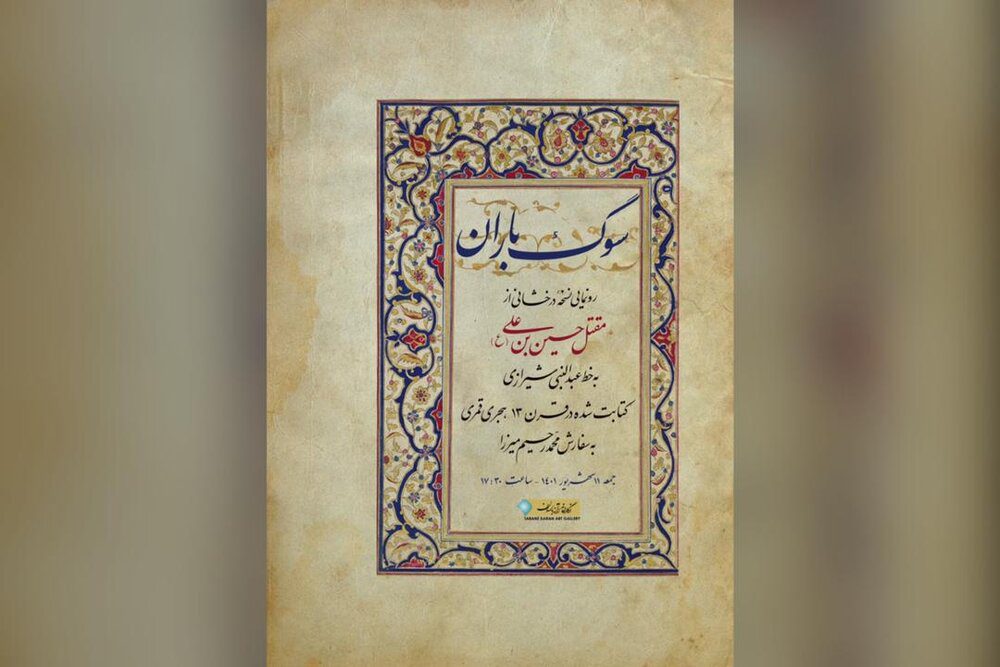 سوگ باران
رونمایی نسخهٔ درخشانی از
مقتل حسین بن علی (ع)
به خط عبدالنبی شیرازی
کتابت شده در قرن ۱۳ هجری قمری
به سفارش محمدرحیم میرزا
جمعه ۱۱ شهریور ۱۴۰۱ - ساعت ۱۷:۳۰
TARANE BARAN ART GALLERY